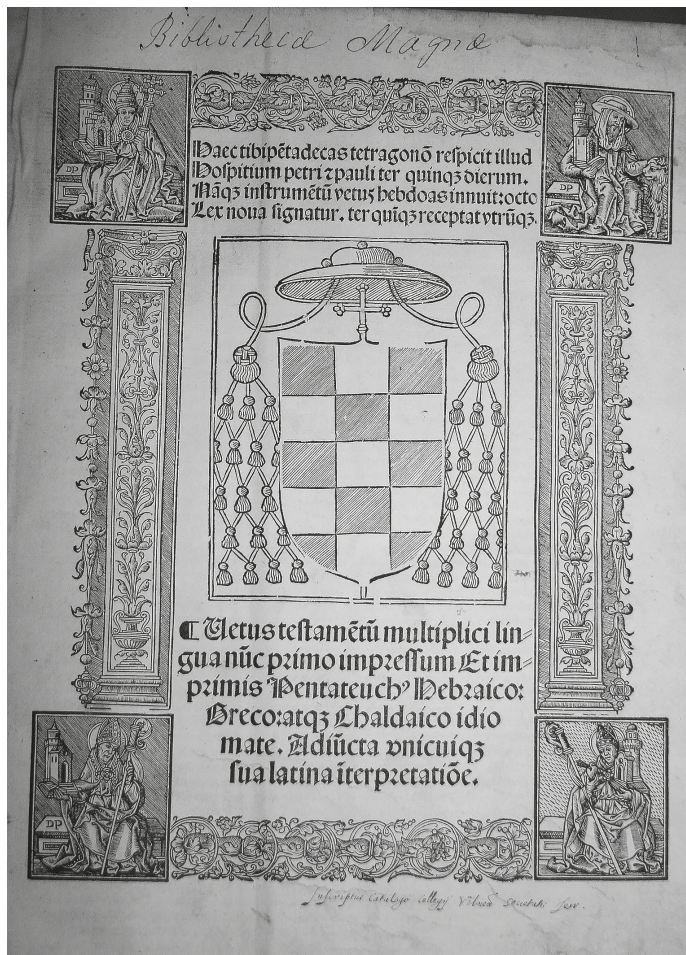 Bibliothecæ Magnæ
DP
DP
Haec tibi pētadecas tetragonō respicit illud
Hospitium petri ⁊ pauli ter quinqꝫ dierum.
Nāqꝫ instrumētū vetus hebdoas innuit: octo
Lex noua signatur. ter quīqꝫ receptat vtrūqꝫ.
¶ Uetus testamētū multiplici lin-
gua nūc primo impressum. Et im-
primis Pentateuchꝰ Hebraico:
Greco: atqꝫ Chaldaico idio
mate. Adiūcta vnicuiqꝫ
sua latina īterpretatiōe.
DP
DP
Inscriptus Catalogo Collegij Vilnen Societatis Jesu.